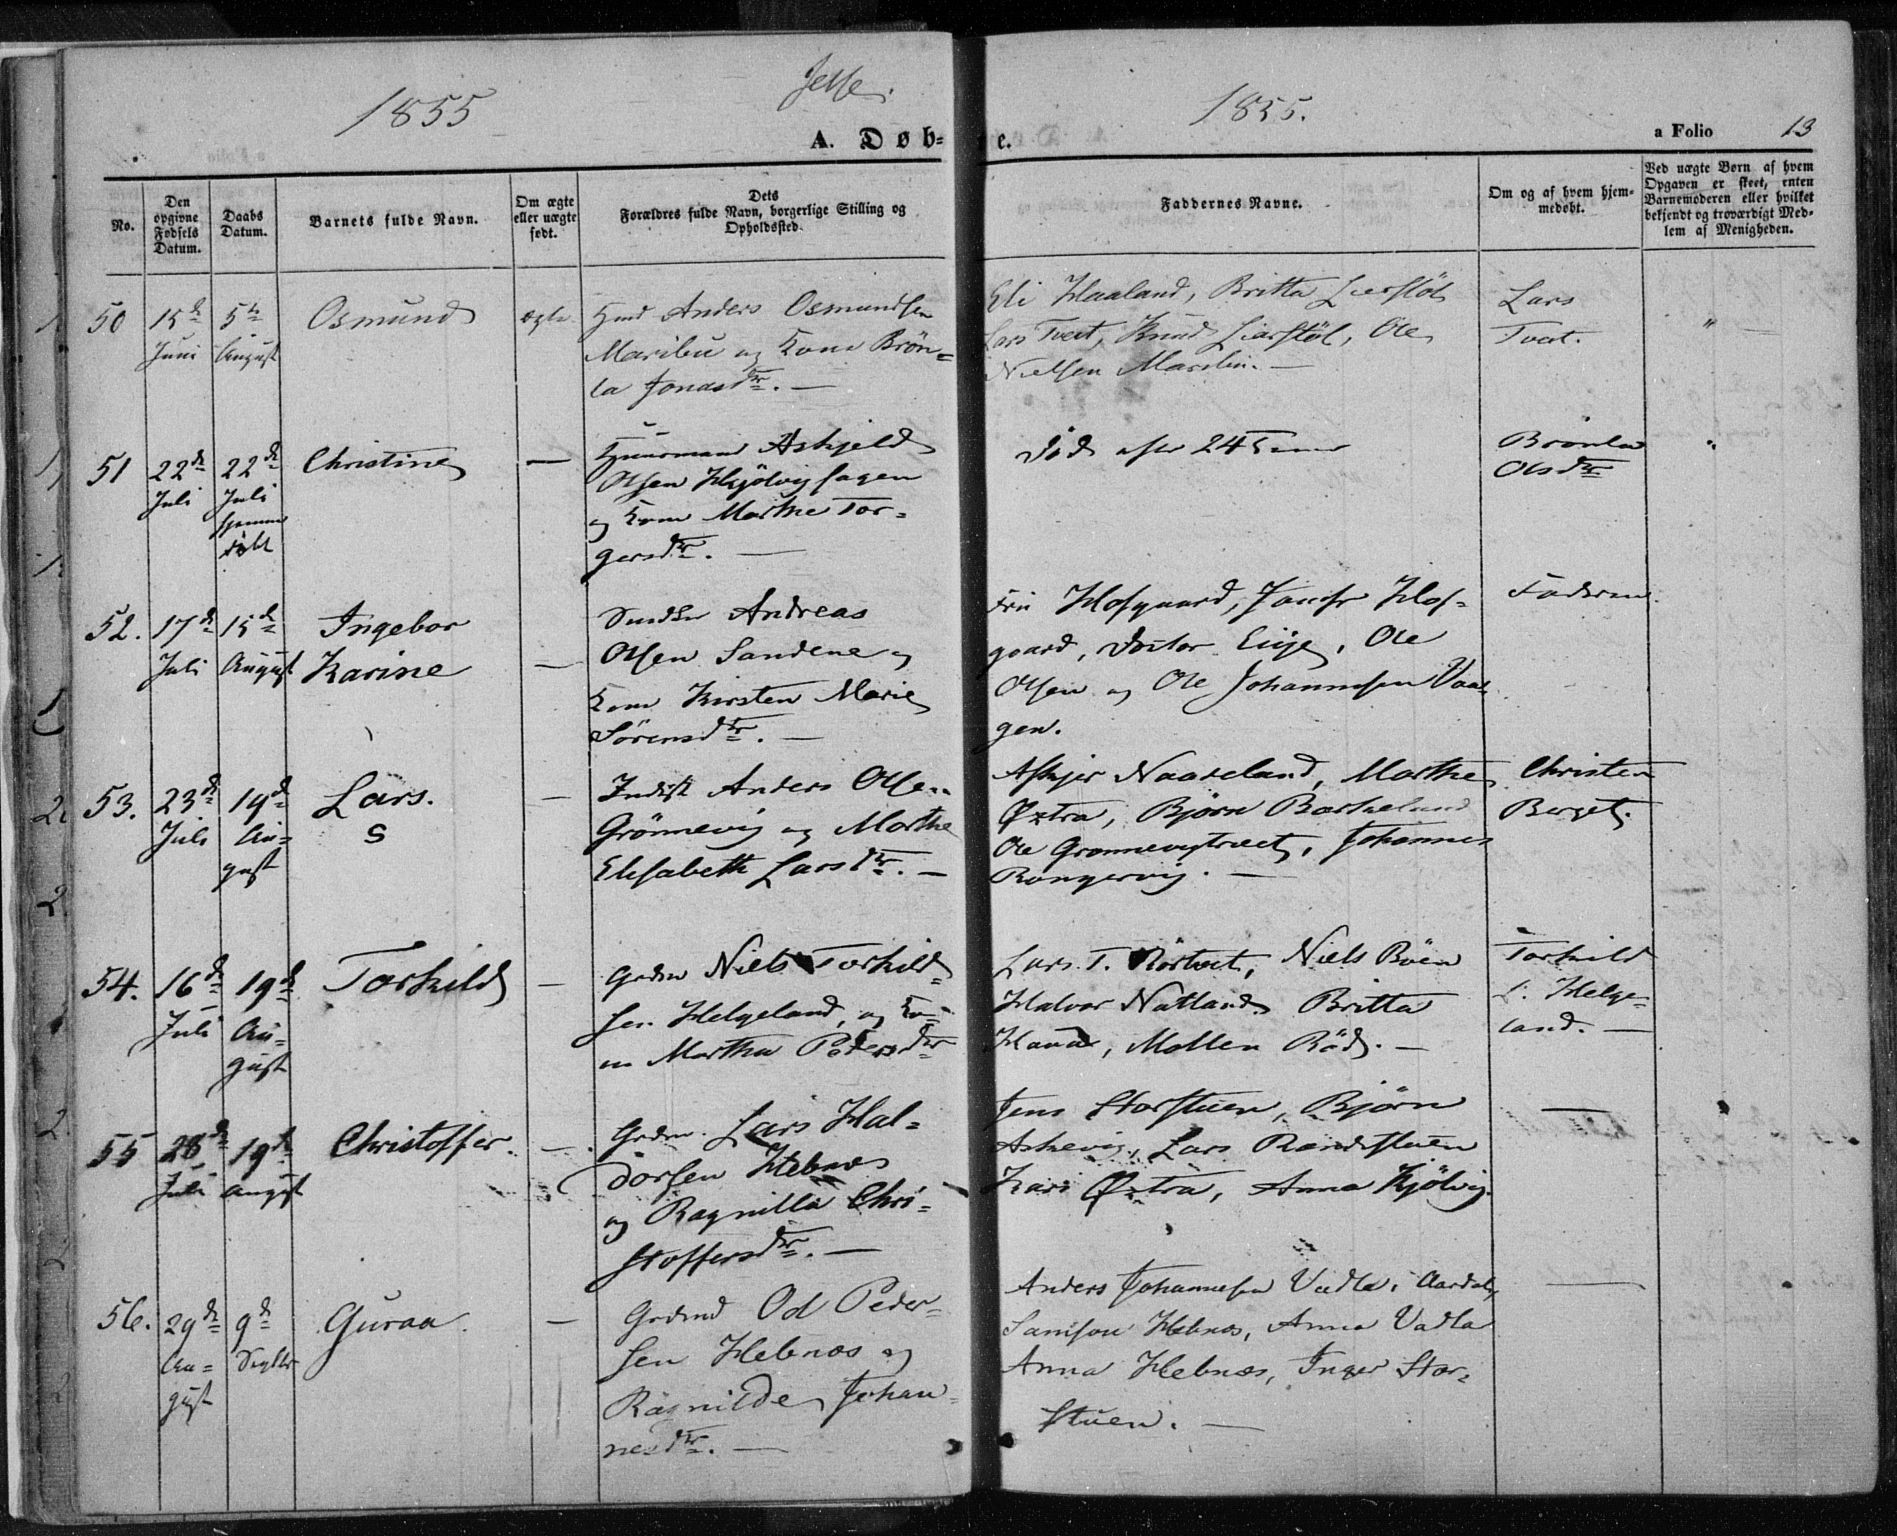 1855
Jelse.
1855.
A. Døb-
e.
a Folio 13
No.
Den opgivne Fødsels Datum.
Daabs Datum.
Barnets fulde Navn.
Om ægte eller uægte født.
Dets Forældres fulde Navn, borgerlige Stilling og Opholdssted.
Faddernes Navne.
Om og af hvem hjemmedøbt.
Ved uægte Børn af hvem Opgaven er skeet, enten Barnemoderen eller hvilket bekjendt og troværdigt Medlem af Menigheden.
50 15de Juni 5te August Osmund ægte
Anders Osmundsen
Maribu og Kone Brön-
la Jonasdtr. —
Eli Haaland, Britta Lierstöl
Lars Tveit, Knud Lierstöl, Ole
Nielsen
Lars
Tveit.
51 22de Juli 22de Juli hjemme døbt Christine —
Huusmand Askjeld
Olsen Hjölvig
og Kone Marthe Tor-
gersdtr. —
Död efter 24 Timer
Brönla
Olsdtr
52. 17de Juli 15de August Ingebor Karine —
Andreas
Olsen Sandene og
Kone Kirsten Marie
Sörensdtr. —
Fru Hofgaard, Jomfr Hof-
gaard, Doctor, Ole
Olsen og Ole Johannesen Vaa-
gen.
Faderen.
53. 23de Juli 19de August Lars. S —
Inderst Anders Olsen
Grönnevig og Marthe
Elisabeth Larsdtr. —
Askjer Naadeland, Marthe
Øztra, Björn Barkeland
Ole Grønnevigtveet, Johannes
Rongervig. —
Christen
Berget.
54. 16de Juli 19de August Torkild —
Grdm Niels Torkild-
sen Helgeland, og Ko-
ne Martha Pedersdtr
Lars T. Nörtveit, Niels Böen
Halvor Natland. Britta
Hanæ, Mallen Röd. —
Torkild
L. Helge-
land. —
55 28de Juli 19de August Christoffer. —
Grdm. Lars Hal-
dorsen Hebnes
og Ragnilla Chri-
stoffersdtr. —
Jens Storstuen, Björn
Askevig, Lars Randstuen
Kari Øztra, Anna Hjölvig.
—
56. 29de August 9de Septbr Guraa. —
Grdmd Od Peder-
sen Hebnæs og
Ragnilde Johan-
nesdtr. —
Anders Johannesen Vadla i Aardal,
Samson Hebnæs, Anna Vadla
Anna Hebnæs, Inger Stor-
stuen. —
—